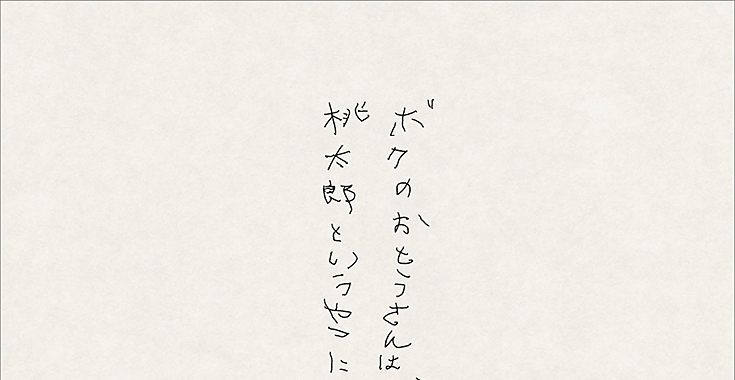 ボクのおとうさんは、
桃太郎というやつに